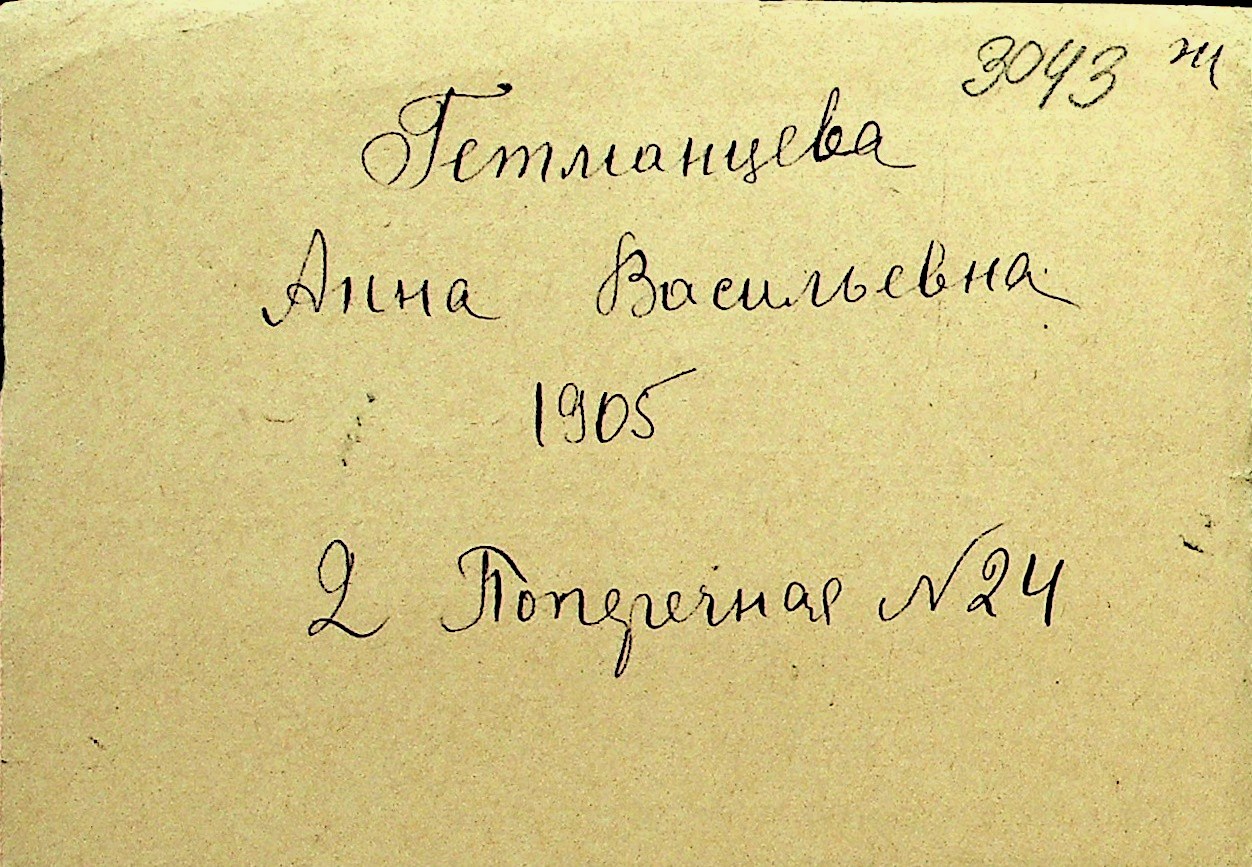 3043 ж
Гетманцева
Анна Васильевна
1905
2 Поперечная №24